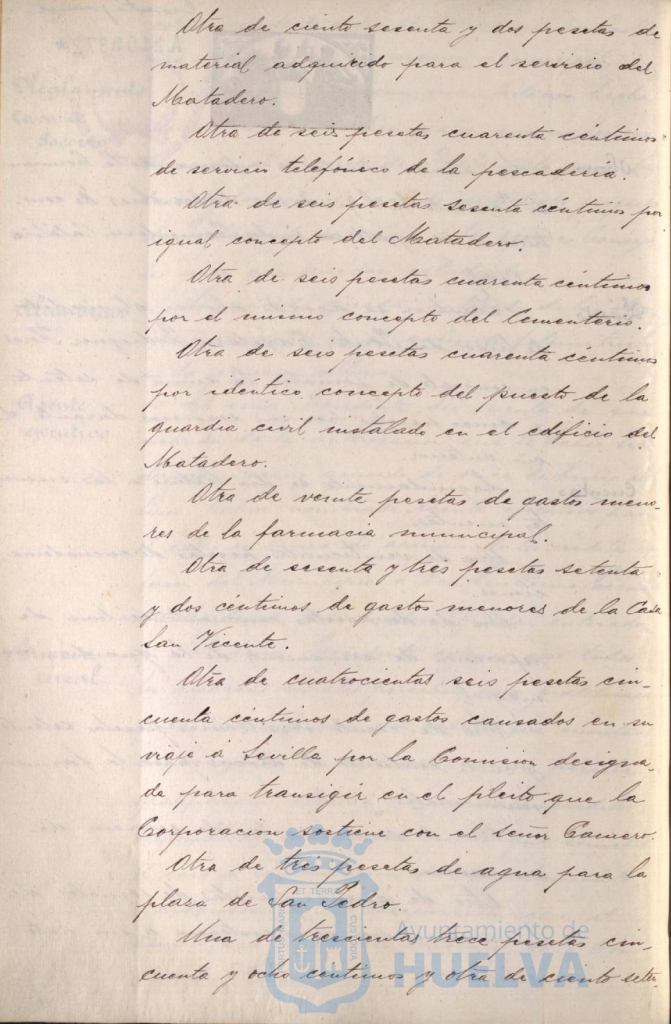 Otra de ciento sesenta y dos pesetas de
material adquirido para el servicio del
Matadero.
Otra de seis pesetas cuarenta céntimos
de servicio telefónico de la pescadería.
Otra de seis pesetas sesenta céntimos por
igual concepto del Matadero.
Otra de seis pesetas cuarenta céntimos
por el mismo concepto del Cementerio.
Otra de seis pesetas cuarenta céntimos
por idéntico concepto del puesto de la
guardia civil instalado en el edificio del
Matadero.
Otra de veinte pesetas de gastos meno-
res de la farmacia municipal.
Otra de sesenta y tres pesetas setenta
y dos céntimos de gastos menores de la Casa
San Vicente.
Otra de cuatrocientas seis pesetas cin-
cuenta céntimos de gastos causados en su
viaje á Sevilla por la Comision designa-
da para transigir en el pleito que la
Corporacion sostiene con el señor
Otra de tres pesetas de agua para la
plaza de San Pedro.
Una de trescientas trece pesetas cin-
cuenta y ocho centimos y otra de ciento seten-
Ayuntamiento de
HUELVA